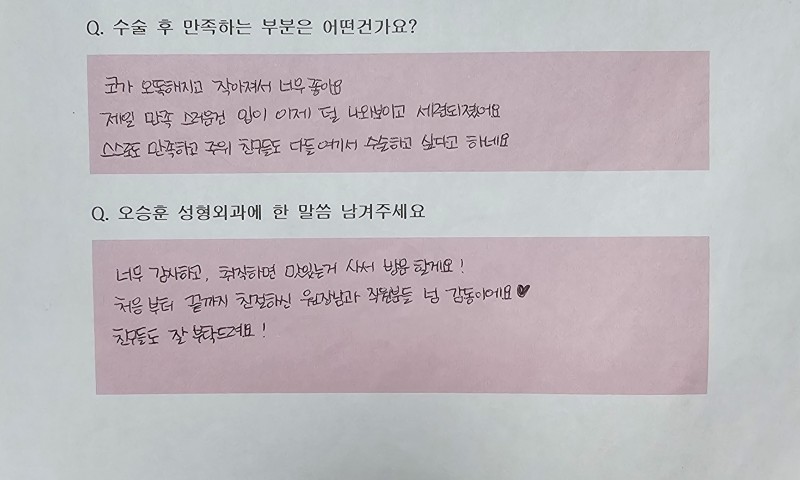 Q. 수술 후 만족하는 부분은 어떤건가요?
코가 오똑해지고 작아져서 너무 좋아요
제일 만족 스러운건 입이 이제 덜 나와보이고 세련되졌어요
스스로도 만족하고 주위 친구들도 다들 여기서 수술하고 싶다고 하네요
Q. 오승훈 성형외과에 한 말씀 남겨주세요
너무 감사하고, 취직하면 맛있는거 사서 방문 할게요!
처음 부터 끝까지 친절하신 원장님과 직원분들 넘 감동이에요♥
친구들도 잘 부탁드려요!